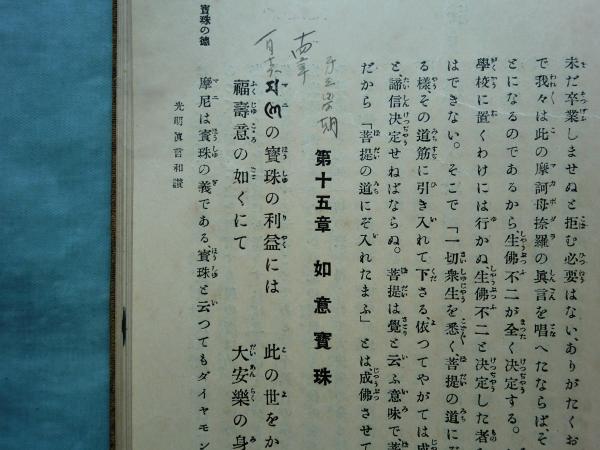 未だ卒業しませぬと拒む必要はない、ありがたくお
で我々は此の摩訶母捺羅の眞言を唱へたならばそ
とになるのであるから生佛不二が全く決定する。
學校に置くわけには行かぬ生佛不二と決定した者を
はできない。そこで「一切衆生を悉く、菩提の道にぞ
る様、その道筋に引き入れて下さる、依つてやがては成
と、諦信決定せねばならぬ。菩提は覺と云ふ意味で、菩
だから「菩提の道にぞ入れたまふ」とは、成佛させて
第十五章 如意寶珠
の寶珠の利益には 此の世をか
福壽意の如くにて 大安樂の身
摩尼は寶珠の義である、寶珠と云つてもダイヤモン
光明眞言和讃
寶珠の德